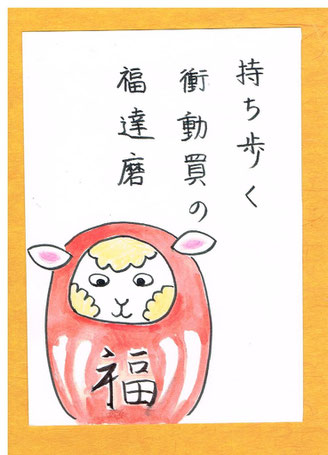 持ち歩く
衝動買の
福達磨
福